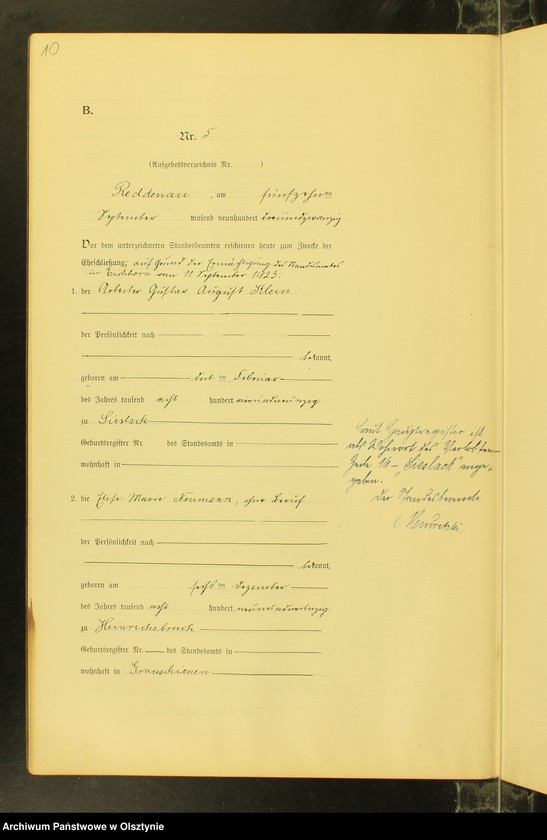 10
B.
Nr. 5
(Aufgebotsverzeichnis Nr. )
Reddenau, am fünfzehnten
September tausend neunhundert dreiundzwanzig
Vor dem unterzeichneten Standesbeamten erschienen heute zum Zwecke der
Eheschließung; auf Grund der Ermächtigung des Standesamtes
in Eichhorn vom 11 September 1923:
1. der Arbeiter Gustav August Klein
der Persönlichkeit nach
bekannt,
geboren am ten Februar
des Jahres tausend acht hundert
zu Sieslack
Geburtsregister Nr. des Standesamts in
wohnhaft in
Laut Hauptregister ist
als Wohnort des Verlobten
Zeile 16 – "Sieslack" ange-
geben.
Der Standesbeamte
2. die Elise Marie Neumann, ohne Beruf
der Persönlichkeit nach
bekannt,
geboren am sechsten Dezember
des Jahres tausend acht hundert
zu Heinrichsbruch
Geburtsregister Nr. des Standesamts in
wohnhaft in Grauschienen
Archiwum Państwowe w Olsztynie